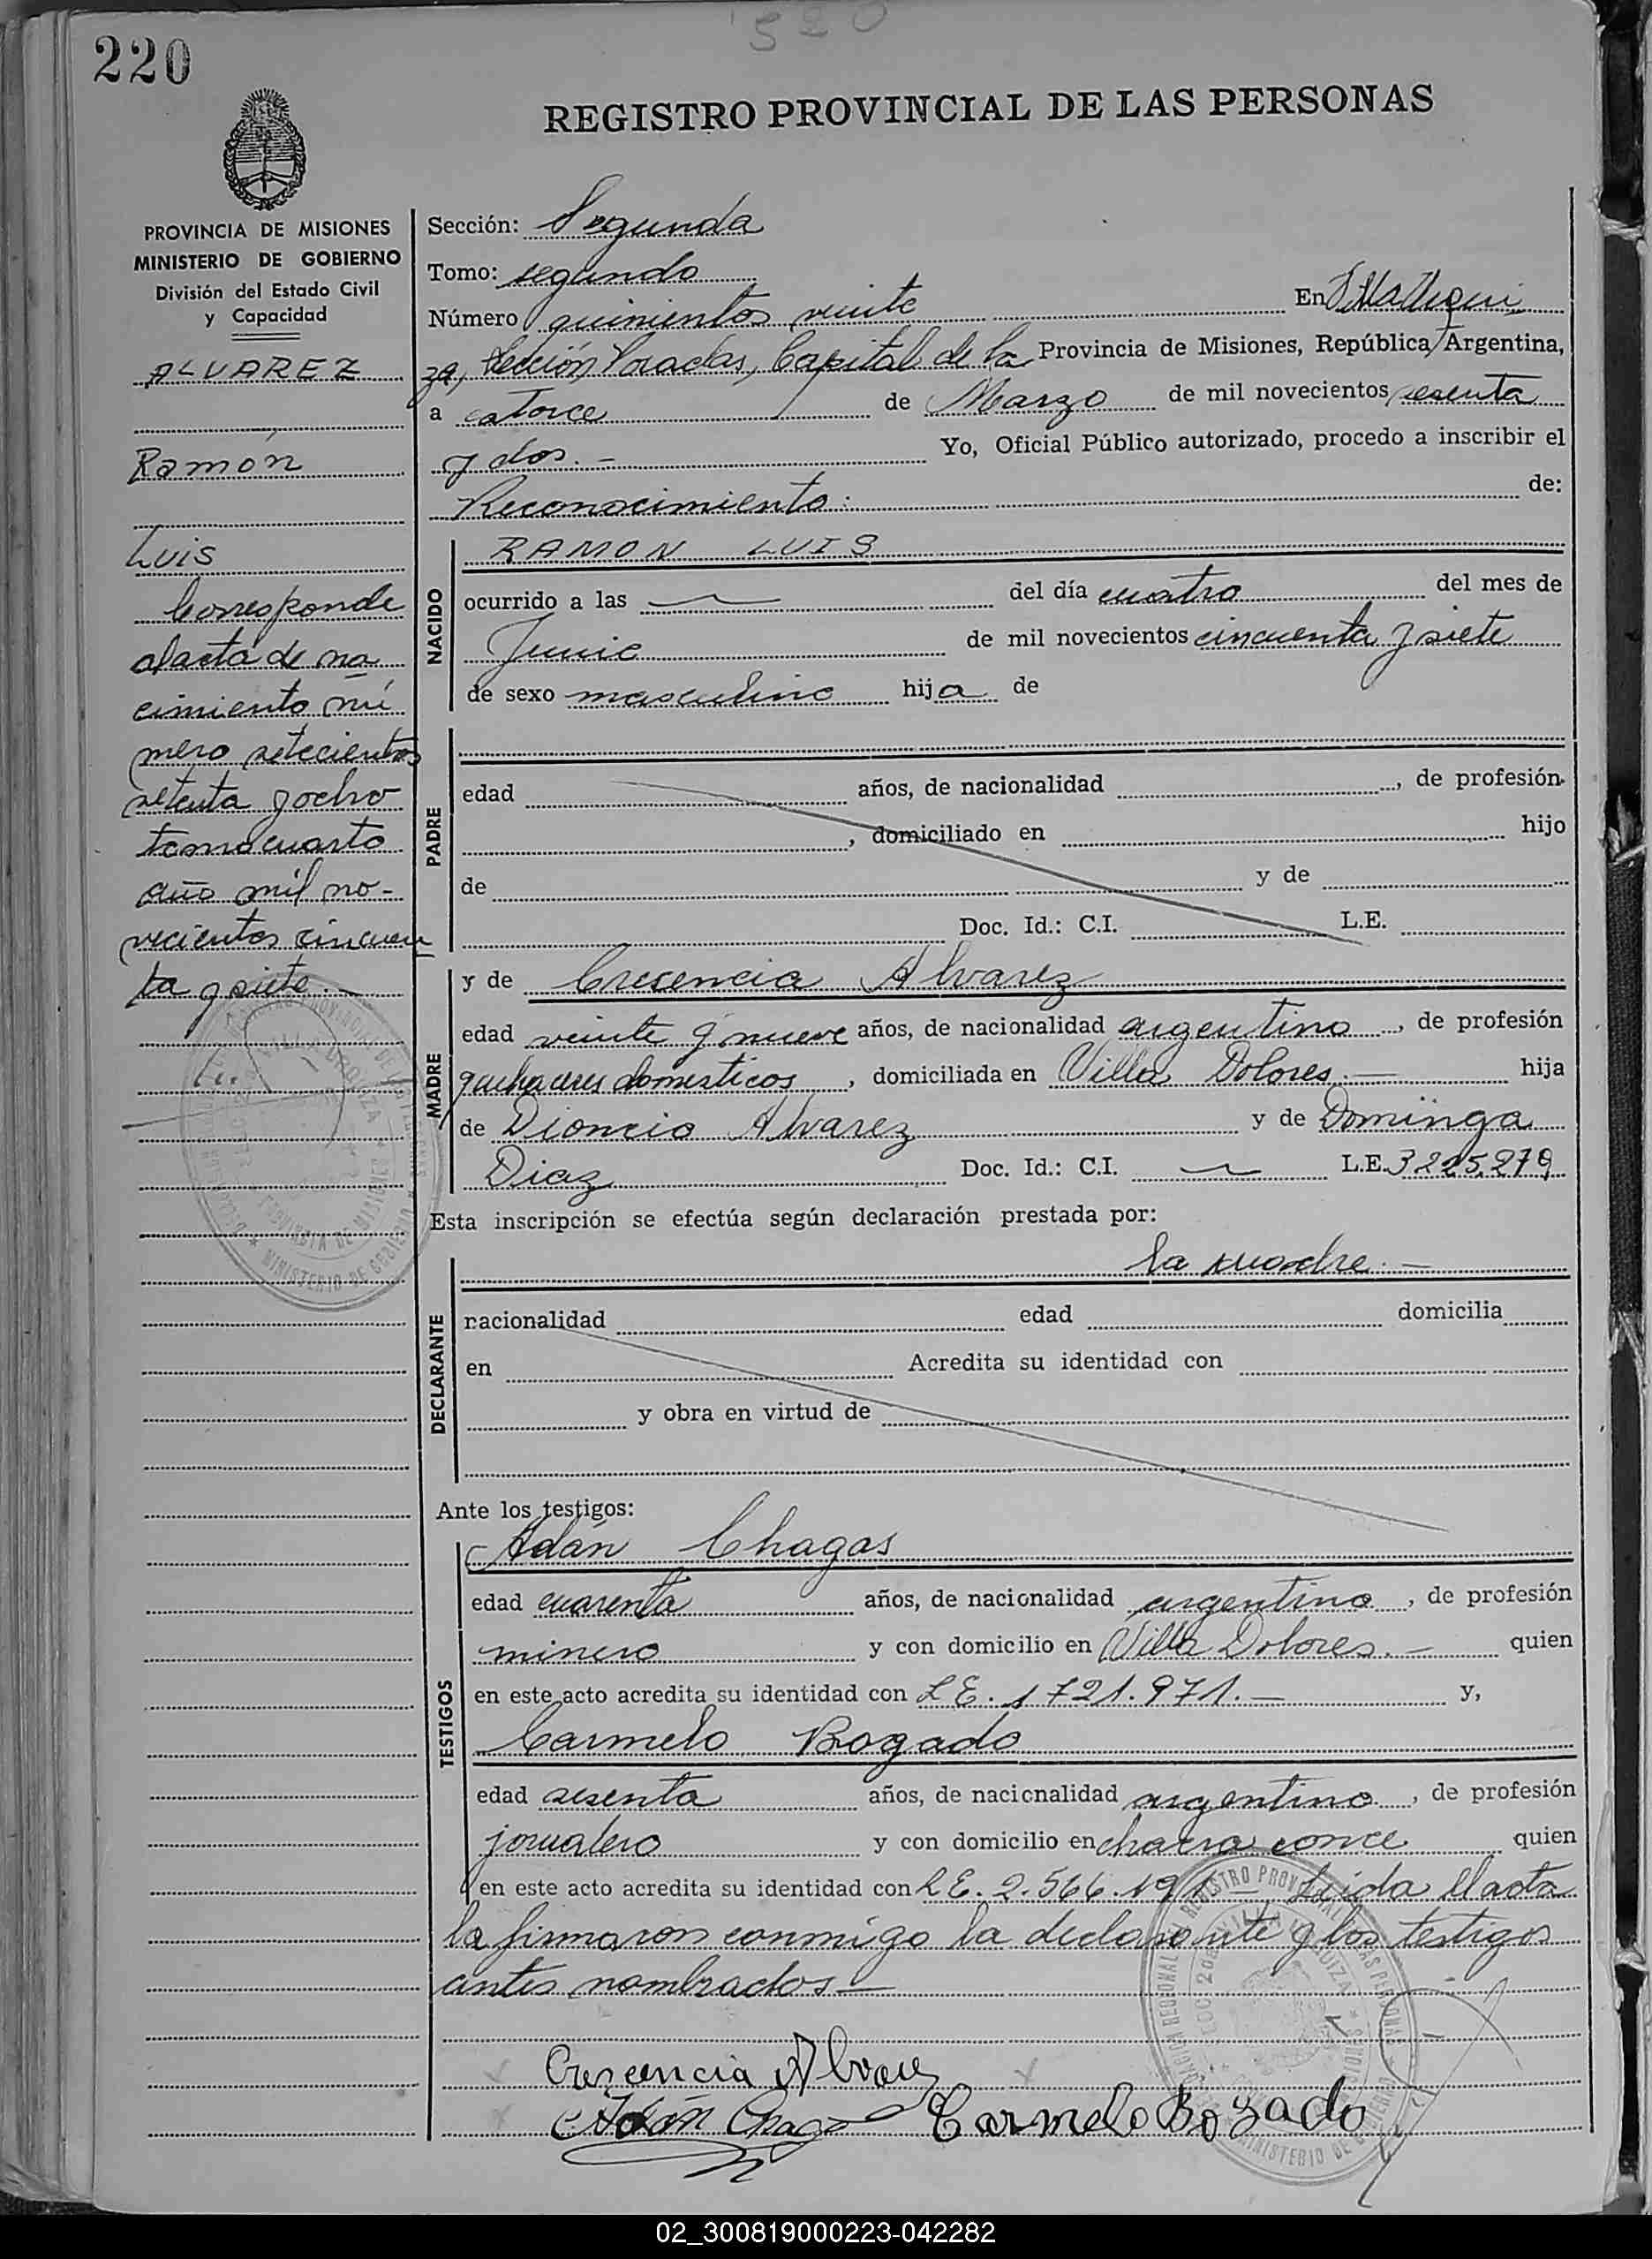 520
220
REGISTRO PROVINCIAL DE LAS PERSONAS
PROVINCIA DE MISIONES
MINISTERIO DE GOBIERNO
División del Estado Civil
y Capacidad
ALVAREZ
Ramón
Luis
Corresponde
al acta de na
cimiento nú
mero setecientos
setenta y ocho
tomo cuarto
año mil no-
vecientos cincuen
ta y siete.—
Sección: Segunda
Tomo: segundo
Número quinientos veinte En Villa Urqui
za, Sección Posadas, Capital de la Provincia de Misiones, República Argentina,
a catorce de Marzo de mil novecientos sesenta
y dos.— Yo, Oficial Público autorizado, procedo a inscribir el
Reconocimiento: de:
NACIDO
RAMON LUIS
ocurrido a las — del día cuatro del mes de
Junio de mil novecientos cincuenta y siete
de sexo masculino hija de
PADRE
edad años, de nacionalidad , de profesión
, domiciliado en hijo
de y de
Doc. Id.: C.I. L.E.
MADRE
y de Cresencia Alvarez
edad veinte y nueve años, de nacionalidad argentina , de profesión
quehaceres domesticos , domiciliada en Villa Dolores.— hija
de Dioncio Alvarez y de Dominga
Diaz Doc. Id.: C.I. — L.E. 3225.279
Esta inscripción se efectúa según declaración prestada por:
DECLARANTE
la madre.—
nacionalidad edad domicilia
en Acredita su identidad con
y obra en virtud de
Ante los testigos:
TESTIGOS
Adán Chagas
edad cuarenta años, de nacionalidad argentino , de profesión
minero y con domicilio en Villa Dolores.— quien
en este acto acredita su identidad con L E. 1721.971.— y,
Carmelo Bogado
edad sesenta años, de nacionalidad argentino , de profesión
jornalero y con domicilio en chacra once quien
en este acto acredita su identidad con L E. 2.566.191— Leida el acta
la firmaron conmigo la declarante y los testigos
antes nombrados—
Crescencia Alvarez
Adán Chagas Carmelo Bogado
02_300819000223-042282